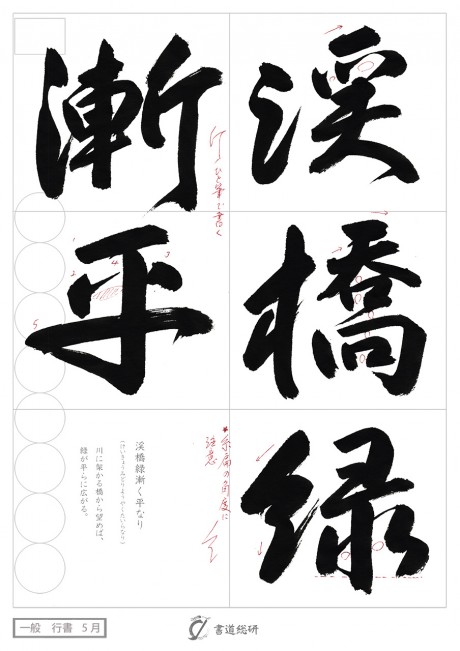 渓
橋
緑
漸
平
ひと筆で書く
1
2
3
4
5
★糸扁の角度に
注意
渓橋緑漸く平なり
(けいきょうみどりようやくたいらなり)
川に架かる橋から望めば、
緑が平らに広がる。
一般 行書 5月
書道総研